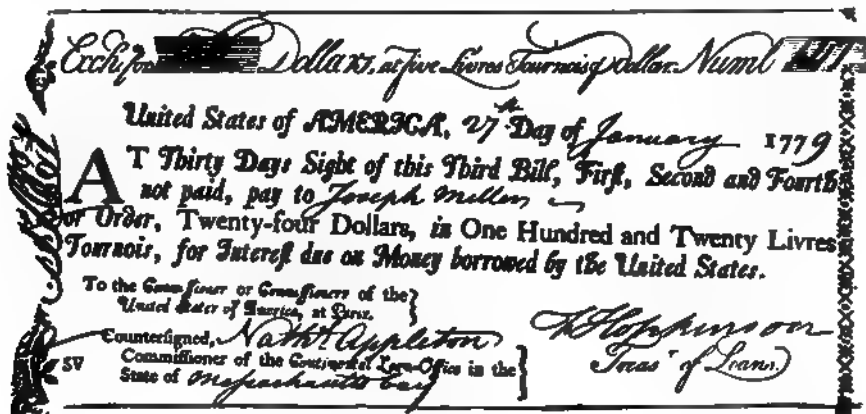 Exch for Dollars, at five Livres Tournois p Dollar. Numb
United States of AMERICA, 27th Day of January 1779
AT Thirty Days Sight of this Third Bill, First, Second and Fourth
not paid, pay to Joseph Mellen
or Order, Twenty-four Dollars, in One Hundred and Twenty Livres
Tournois, for Interest due on Money borrowed by the United States.
To the Commissioner or Commissioners of the
United States of America, at Paris.
Countersigned, Nathl Appleton
Commissioner of the Continental Loan-Office in the
State of Massachusetts bay
SV
Hopkinson
Treasr of Loans.